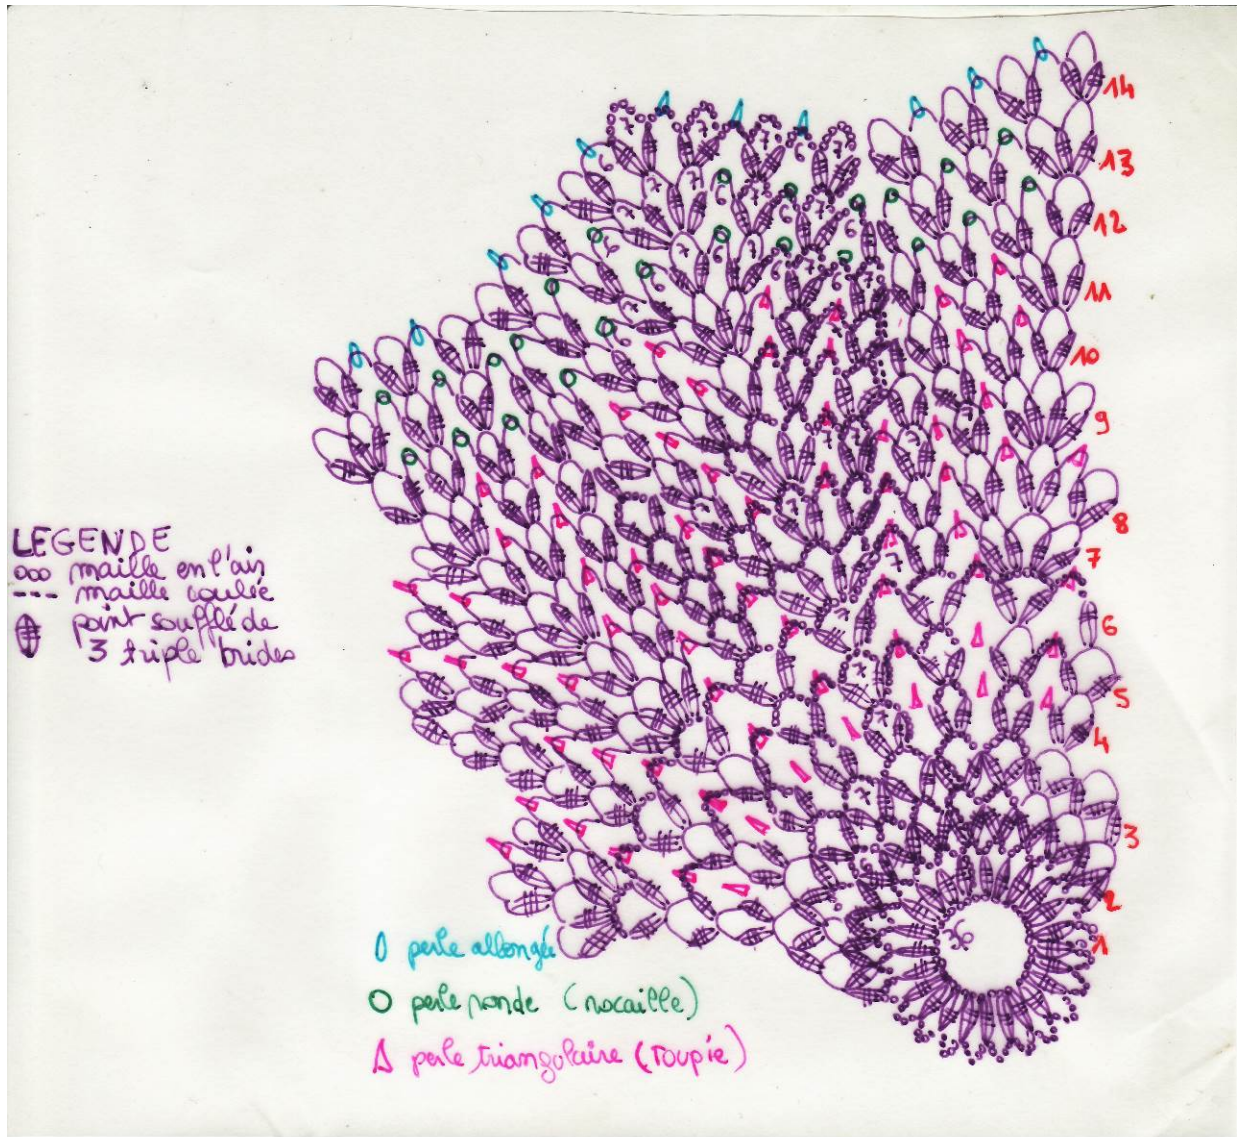 14
13
12
11
10
9
8
7
6
5
4
3
2
1
LEGENDE
ooo maille en l'air
--- maille coulée
point soufflé de
3 triple brides
36
perle allongée
perle ronde (rocaille)
perle triangulaire (toupie)